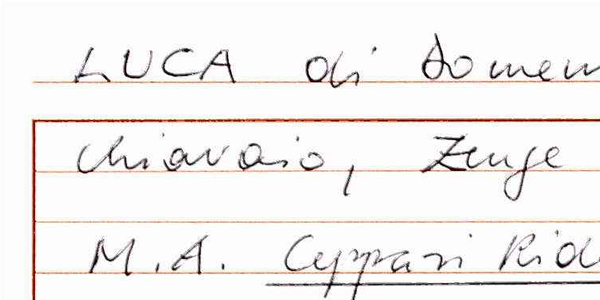 LUCA di Domen
chiavaio, Zeuge
M.A. Cyppari Rid